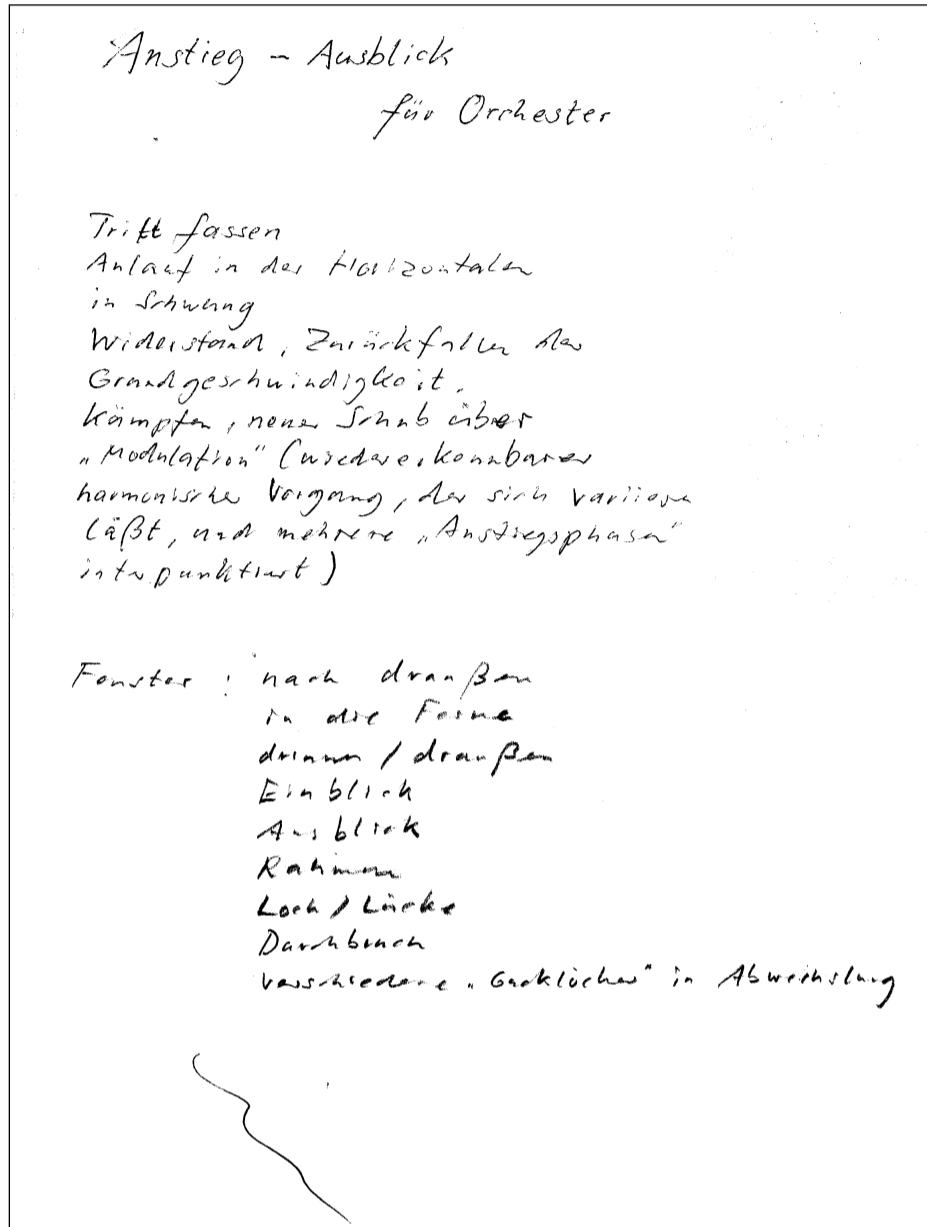 Anstieg – Ausblick
für Orchester
Tritt fassen
Anlauf in der Horizontalen
in Schwung
Widerstand, Zurückfallen der
Grundgeschwindigkeit.
kämpfen, neuer Schub über
„Modulation" (wiedererkennbarer
harmonischer Vorgang, der sich variieren
läßt, und mehrere „Anstiegsphasen"
interpunktiert)
Fenster : nach draußen
in die Ferne
drinnen / draußen
Einblick
Ausblick
Rahmen
Loch / Lücke
Durchbruch
verschiedene „Gucklöcher" in Abwechslung